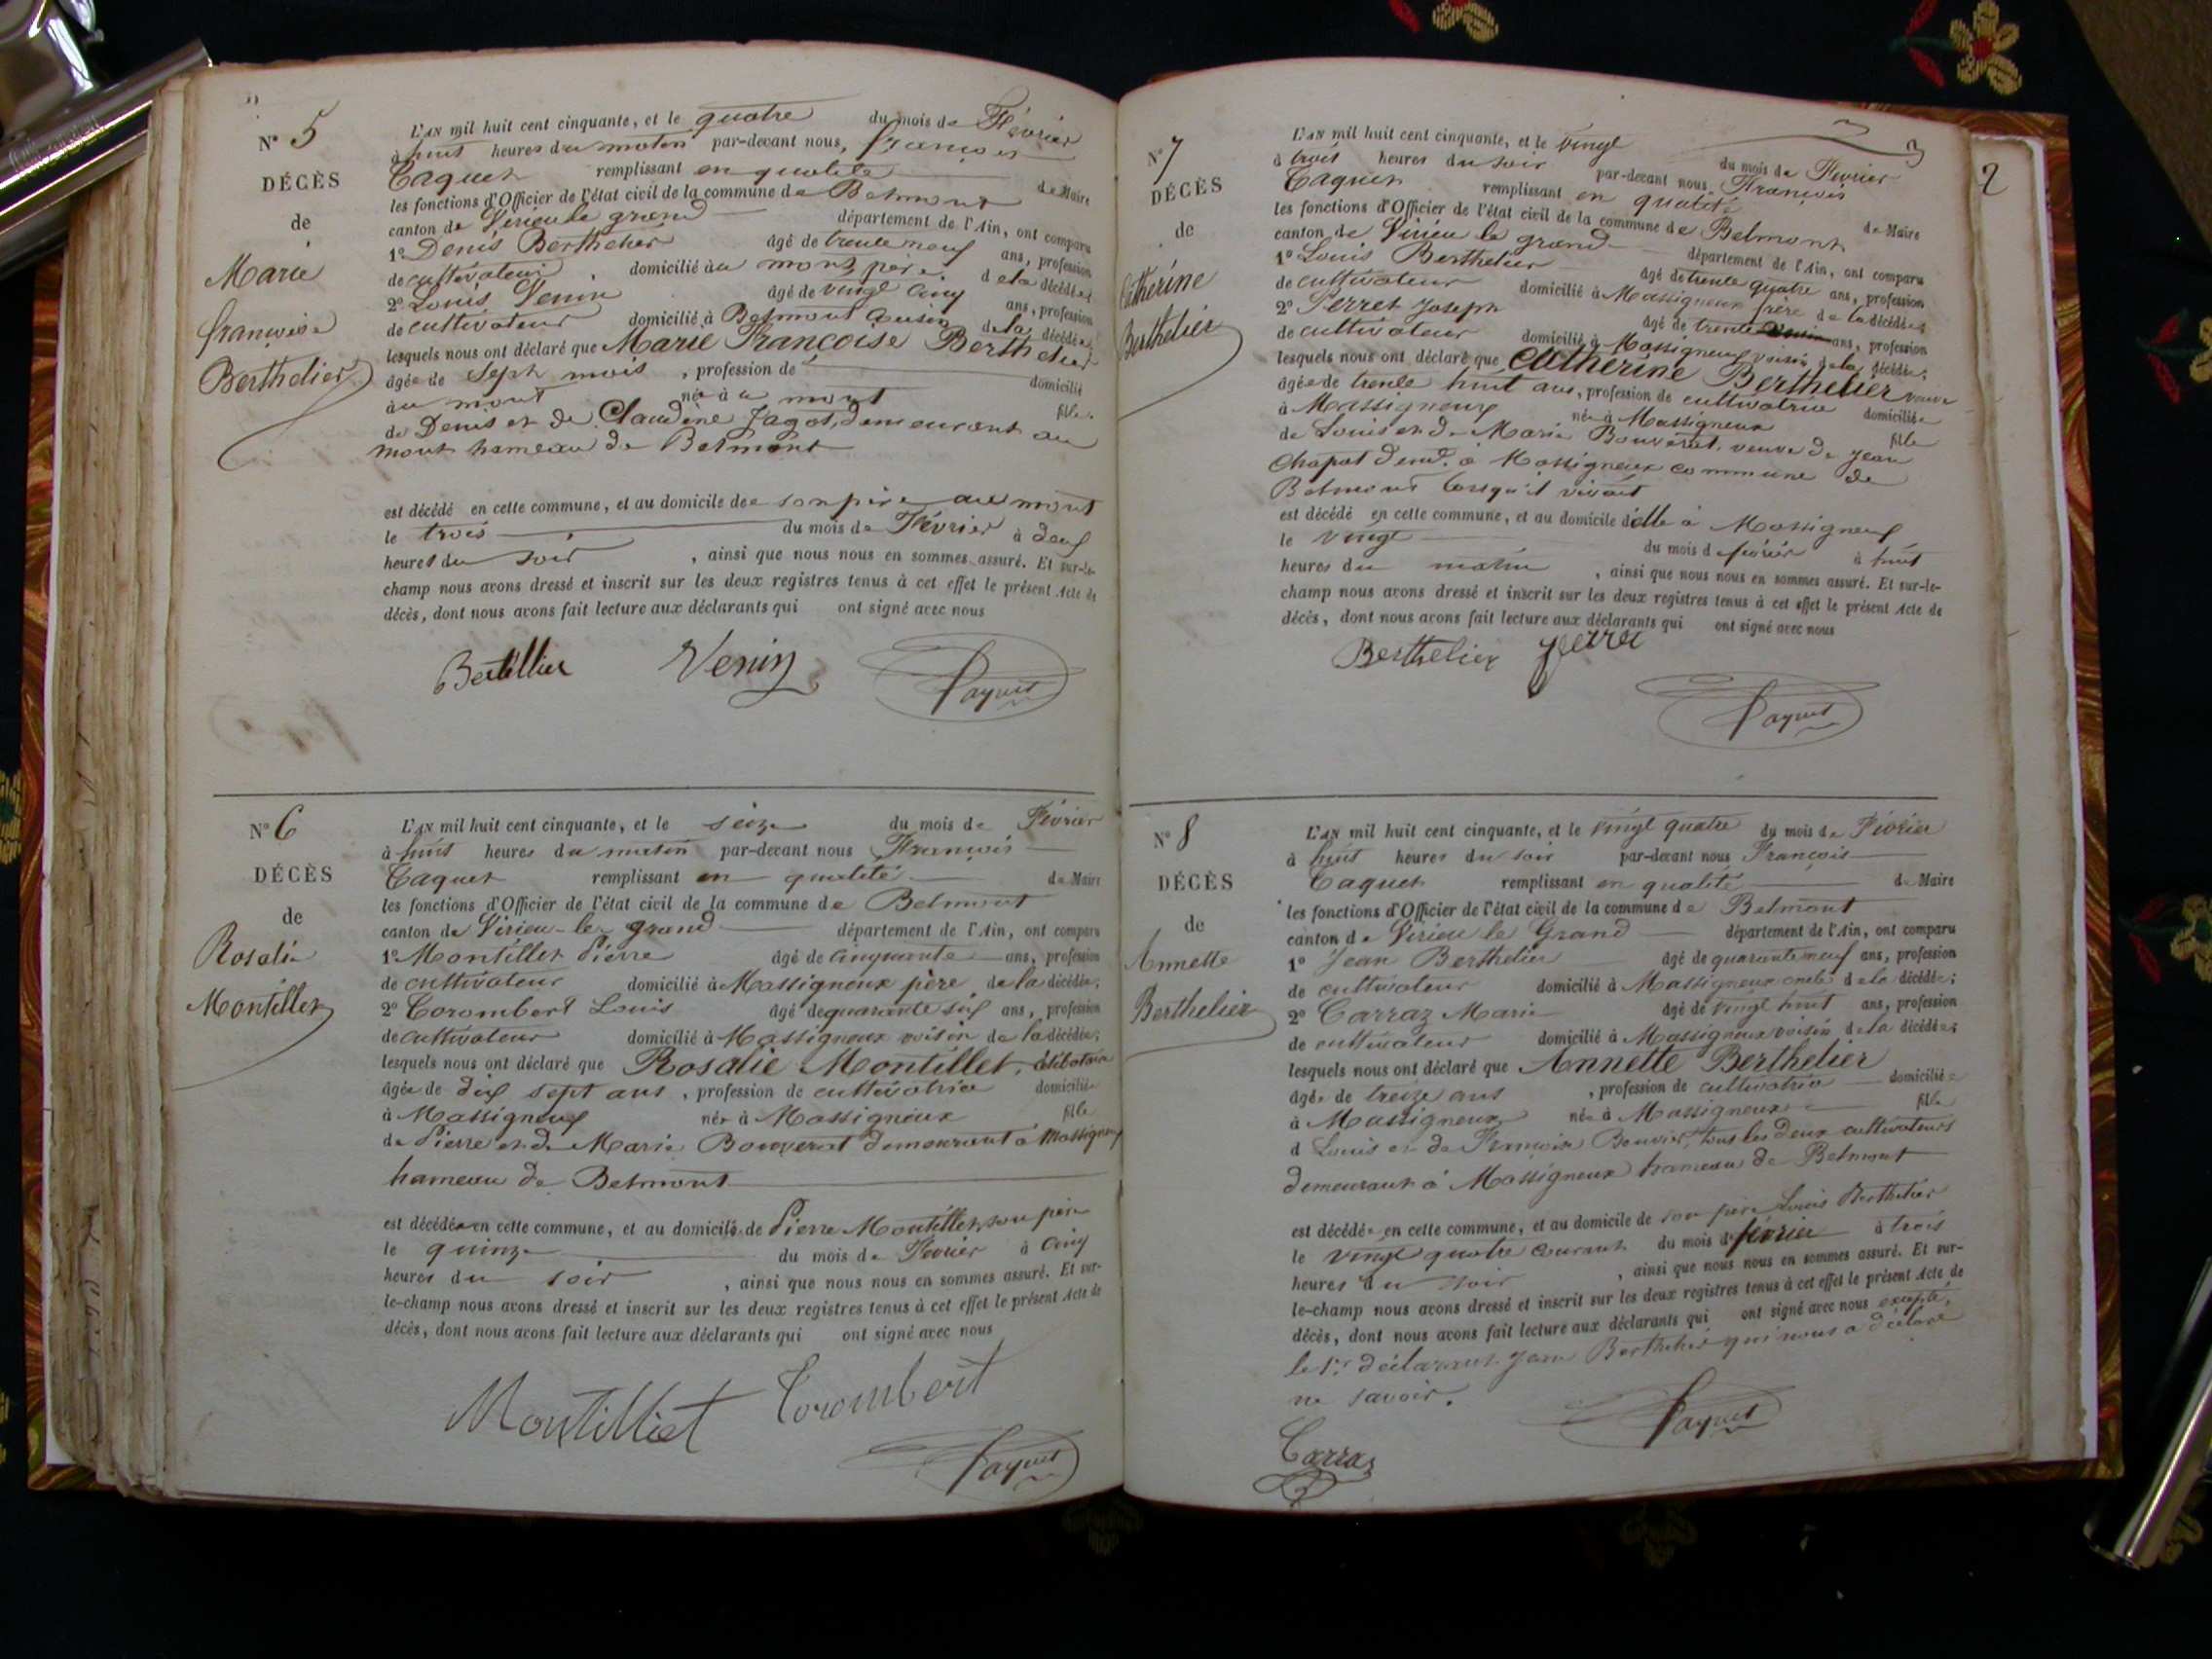 N° 5
DÉCÈS
de
Marie
françoise
Berthelier
L'AN mil huit cent cinquante, et le quatre du mois de Février
à huit heures du matin par-devant nous, françois
Paquet remplissant en qualité de Maire
les fonctions d'Officier de l'état civil de la commune de Belmont
canton de Virieu le grand département de l'Ain, ont comparu
1° Denis Berthelier âgé de trente neuf ans, profession
de cultivateur, domicilié au mont, père de la décédée;
2° Louis Venin âgé de vingt cinq ans, profession
de cultivateur domicilié à Belmont cousin de la décédée;
lesquels nous ont déclaré que Marie Françoise Berthelier
âgée de Sept mois, profession de domicilié
au mont née au mont fille
de Denis et de Claudine Jagot, demeurant au
mont hameau de Belmont
est décédé en cette commune, et au domicile de son père au mont
le trois du mois de Février à deux
heures du soir, ainsi que nous nous en sommes assuré. Et sur-le-
champ nous avons dressé et inscrit sur les deux registres tenus à cet effet le présent Acte de
décès, dont nous avons fait lecture aux déclarants qui ont signé avec nous
Bertillier Venin Paquet
N° 6
DÉCÈS
de
Rosalie
Montillet
L'AN mil huit cent cinquante, et le seize du mois de Février
à huit heures du matin par-devant nous François
Paquet remplissant en qualité de Maire
les fonctions d'Officier de l'état civil de la commune de Belmont
canton de Virieu-le-grand département de l'Ain, ont comparu
1° Montillet Pierre âgé de cinquante ans, profession
de cultivateur domicilié à Massigneux père de la décédée;
2° Corombert Louis âgé de quarante six ans, profession
de cultivateur domicilié à Massigneux voisin de la décédée;
lesquels nous ont déclaré que Rosalie Montillet, célibataire
âgée de dix sept ans, profession de cultivatrice domiciliée
à Massigneux née à Massigneux fille
de Pierre et de Marie Bouverat demeurant à Massigneux
hameau de Belmont
est décédée en cette commune, et au domicile de Pierre Montillet, son père
le quinze du mois de Février à cinq
heures du soir, ainsi que nous nous en sommes assuré. Et sur-
le-champ nous avons dressé et inscrit sur les deux registres tenus à cet effet le présent Acte de
décès, dont nous avons fait lecture aux déclarants qui ont signé avec nous
Montilliet Corombert
Paquet
2
N° 7
DÉCÈS
de
Catherine
Berthelier
L'AN mil huit cent cinquante, et le vingt du mois de Février
à trois heures du soir par-devant nous François
Paquet remplissant en qualité de Maire
les fonctions d'Officier de l'état civil de la commune de Belmont
canton de Virieu le grand département de l'Ain, ont comparu
1° Louis Berthelier âgé de trente quatre ans, profession
de cultivateur domicilié à Massigneux frère de la décédée;
2° Perret Joseph âgé de trente ans, profession
de cultivateur domicilié à Massigneux voisin de la décédée;
lesquels nous ont déclaré que Catherine Berthelier veuve
âgée de trente huit ans, profession de cultivatrice domiciliée
à Massigneux née à Massigneux fille
de Louis et de Marie Bouverat, veuve de Jean
Chapot demt. à Massigneux commune de
Belmont lorsqu'il vivait
est décédé en cette commune, et au domicile d'elle à Massigneux
le vingt du mois de février à huit
heures du matin, ainsi que nous nous en sommes assuré. Et sur-le-
champ nous avons dressé et inscrit sur les deux registres tenus à cet effet le présent Acte de
décès, dont nous avons fait lecture aux déclarants qui ont signé avec nous
Berthelier Perret
Paquet
N° 8
DÉCÈS
de
Annette
Berthelier
L'AN mil huit cent cinquante, et le vingt quatre du mois de Février
à huit heures du soir par-devant nous François
Paquet remplissant en qualité de Maire
les fonctions d'Officier de l'état civil de la commune de Belmont
canton de Virieu le Grand département de l'Ain, ont comparu
1° Jean Berthelier âgé de quarante neuf ans, profession
de cultivateur domicilié à Massigneux oncle de la décédée;
2° Carraz Marie âgé de vingt huit ans, profession
de cultivateur domicilié à Massigneux voisin de la décédée;
lesquels nous ont déclaré que Annette Berthelier
âgée de treize ans, profession de cultivatrice domiciliée
à Massigneux née à Massigneux fille
d Louis et de Françoise Bouvier, tous les deux cultivateurs
demeurant à Massigneux hameau de Belmont
est décédée en cette commune, et au domicile de son père Louis Berthelier
le vingt quatre courant du mois de février à trois
heures du soir, ainsi que nous nous en sommes assuré. Et sur-
le-champ nous avons dressé et inscrit sur les deux registres tenus à cet effet le présent Acte de
décès, dont nous avons fait lecture aux déclarants qui ont signé avec nous excepté,
le 1er déclarant Jean Berthelier qui nous a déclaré
ne savoir.
Paquet
Carraz